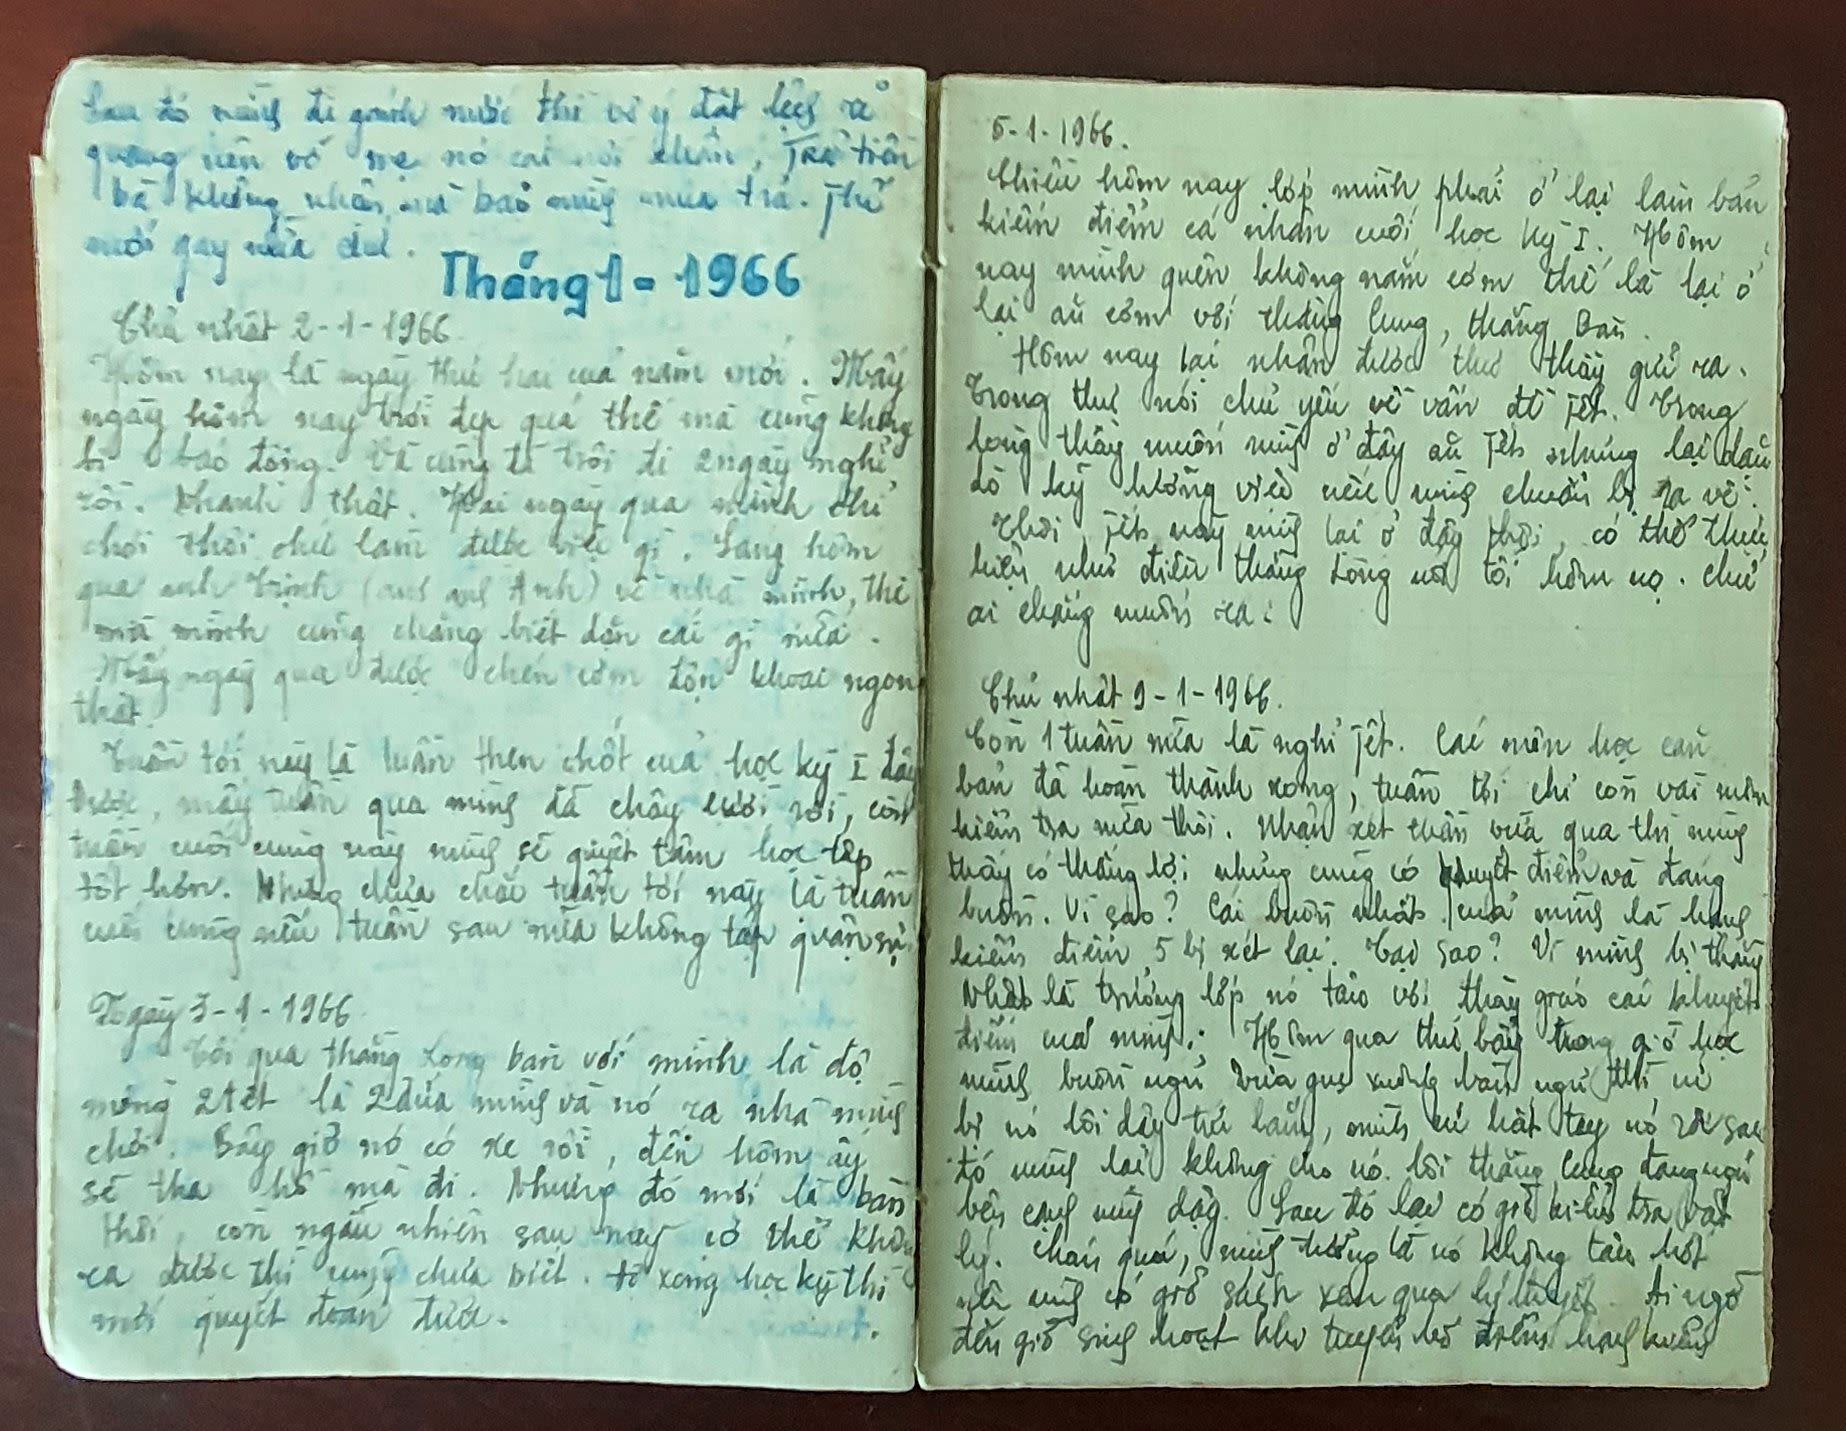 Sau đó mình đi gánh nước thì vô ý đặt lệch rẻ
quang nên vỡ mẹ nó cái nồi chân, Trả tiền
bà không nhận mà bảo mình mua trả. Thế
mới gay nữa chứ.
Tháng 1 - 1966
Chủ nhật 2-1-1966.
Hôm nay là ngày thứ hai của năm mới. Mấy
ngày hôm nay trời đẹp quá thế mà cũng không
bị báo động. Và cũng đã trôi đi 2 ngày nghỉ
rồi. Nhanh thật. Hai ngày qua mình chỉ
chơi thôi chứ làm được việc gì. Sáng hôm
qua anh Trịnh (anh Ánh) về nhà mình, thế
mà mình cũng chẳng biết dặn cái gì nữa.
Mấy ngày qua được chén cơm độn khoai ngon
thật.
Tuần tới này là tuần then chốt của học kỳ I đây
được, mấy tuần qua mình đã chây lười rồi, còn
tuần cuối cùng này mình sẽ quyết tâm học tập
tốt hơn. Nhưng chưa chắc tuần tới này là tuần
cuối cùng nếu tuần sau nữa không tập quân sự.
Ngày 3-1-1966
Tối qua thằng Long bàn với mình là độ
mồng 2 tết là 2 đứa mình và nó ra nhà mình
chơi. Bây giờ nó có xe rồi, đến hôm ấy
sẽ tha hồ mà đi. Nhưng đó mới là bàn
thôi, còn ngẫu nhiên sau này có thể không
ra được thì cũng chưa biết. Để xong học kỳ thì
mới quyết đoán được.
5-1-1966.
Chiều hôm nay lớp mình phải ở lại làm bản
kiểm điểm cá nhân cuối học kỳ I. Hôm
nay mình quên không nắm cơm thế là lại ở
lại ăn cơm với thằng Cung, thằng Ban.
Hôm nay lại nhận được thư thầy gửi ra.
Trong thư nói chủ yếu về vấn đề Tết. Trong
lòng thầy muốn mình ở đây ăn Tết nhưng lại dặn
dò kỹ lưỡng việc nếu mình chuẩn bị ra về.
Thôi, Tết này mình lại ở đây thôi, có thể thực
hiện như điều thằng Long nói tối hôm nọ. Chứ
ai chẳng muốn ra.
Chủ nhật 9-1-1966.
Còn 1 tuần nữa là nghỉ Tết. Các môn học căn
bản đã hoàn thành xong, tuần tới chỉ còn vài môn
kiểm tra nữa thôi. Nhận xét tuần vừa qua thì mình
thấy có thắng lợi nhưng cũng có khuyết điểm và đáng
buồn. Vì sao? Cái buồn nhất của mình là hạnh
kiểm điểm 5 bị xét lại. Tại sao? Vì mình bị thằng
Nhật là trưởng lớp nó tâu với thầy giáo cái khuyết
điểm của mình: Hôm qua thứ bảy trong giờ học
mình buồn ngủ vừa gục xuống bàn ngủ thì
bị nó lôi dậy, mình hất tay nó rồi sau
đó mình lại không cho nó lôi thằng Cung đang ngủ
bên cạnh mình dậy. Sau đó lại có giờ kiểm tra vật
lý. Chán quá, mình tưởng là nó không tâu hót
nên mình có giở sách xem qua lý thuyết. Ai ngờ
đến giờ sinh hoạt khi tuyên bố điểm hạnh kiểm